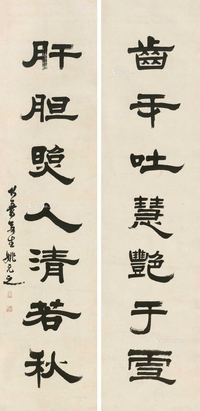 齒牙吐慧艷于雪
肝胆照人清若秋
姚元之